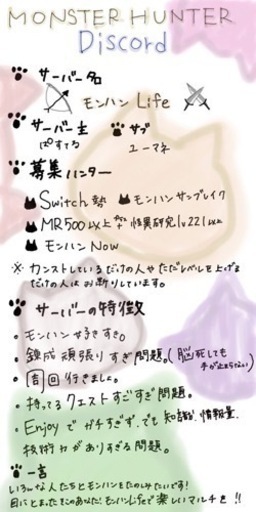 MONSTER HUNTER
Discord
サーバー名
モンハン Life
サーバー主 サブ
ぱすてる ユーマネ
募集ハンター
Switch勢 モンハンサンブレイク
MR500以上 怪異研究lv221以上
モンハンNow
※ カンストしているだけの人やただレベルを上げる
だけの人はお断りしています。
サーバーの特徴
・モンハン好きすぎ。
・錬成頑張りすぎ問題。(脳死しても
手が止まらない)
・周回行きました。
・持ってるクエストすごすぎ問題。
・Enjoyでガチすぎず、でも知識、情報量、
技術力がありすぎる問題。
一言
いろんな人たちとモンハンをたのしみたいです!
目にとまったそこのあなた!モンハンLifeで楽しいマルチを!!